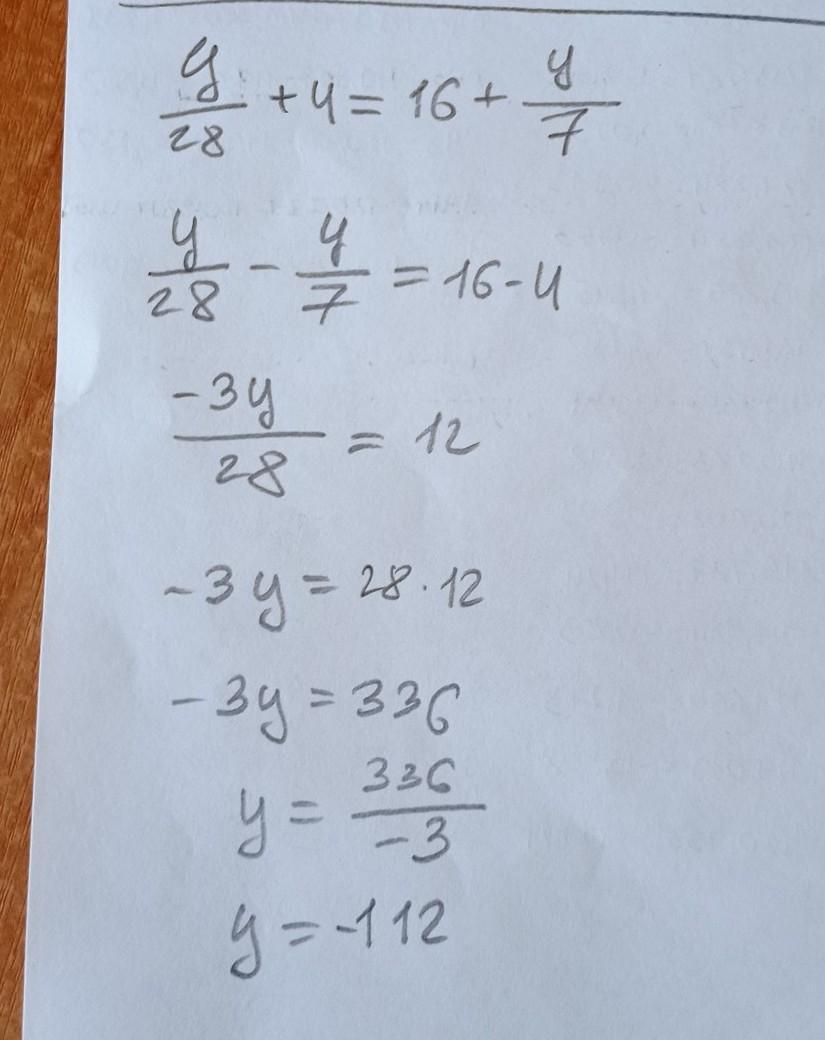 y/28 + 4 = 16 + y/7
y/28 - y/7 = 16 - 4
-3y/28 = 12
-3y = 28 · 12
-3y = 336
y = 336/-3
y = -112